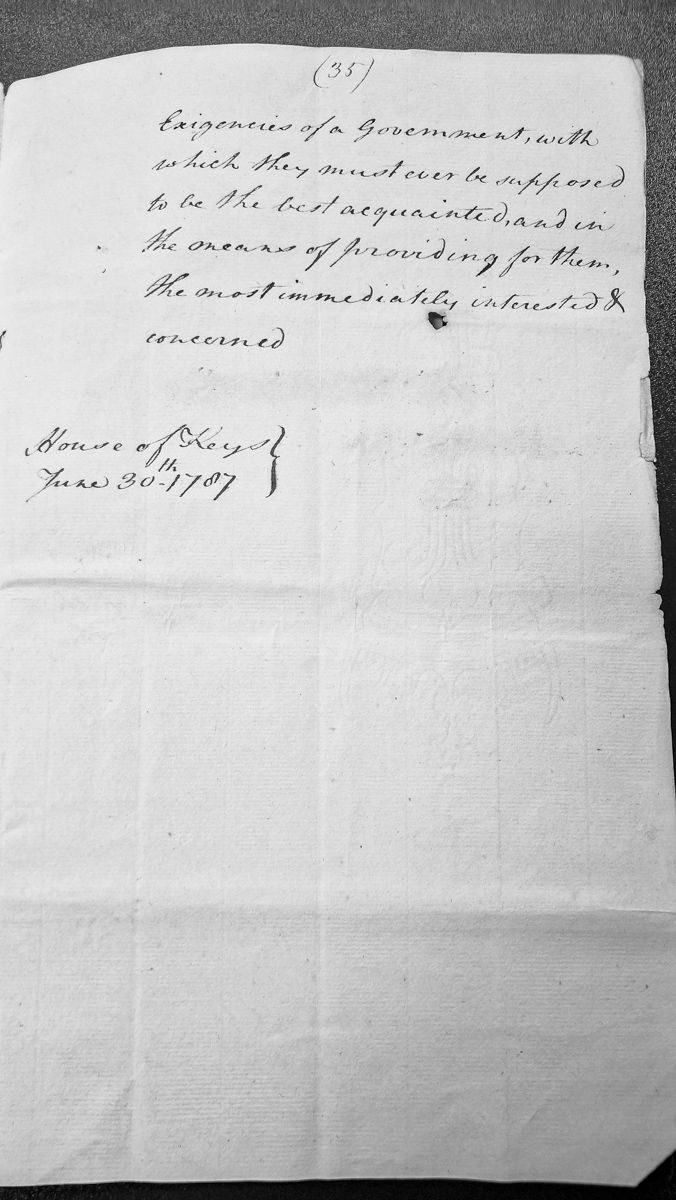 (35)
Exigencies of a Government, with
which they must ever be supposed
to be the best acquainted, and in
the means of providing for them,
the most immediately interested &
concerned
House of Keys }
June 30th 1787